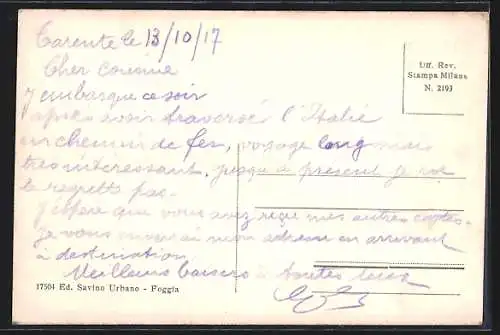 Tarente le 13/10/17
Cher cousine
j embarque ce soir
après avoir traversé l'Italie
en chemin de fer, voyage long mais
très interessant, jusqu'a present je ne
le regrette pas.
J'espère que vous avez reçue mes autres cartes.
Je vous enverai mon adresse en arrivant
à destination
Meilleurs baisers à toutes deux
Uff. Rev.
Stampa Milano
N. 2193
17504 Ed. Savino Urbano - Foggia